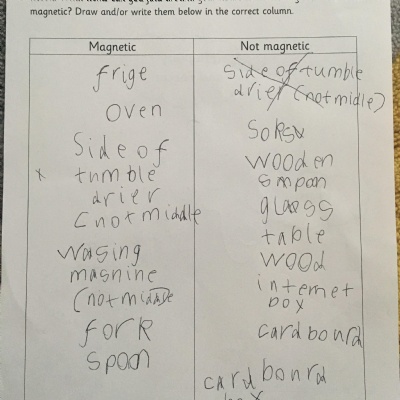 magnetic? Draw and/or write them below in the correct column.
Magnetic
frige
oven
Side of
x tumble
drier
(not middle
wasing
masnine
(not middle
fork
spoon
Not magnetic
Side of tumble
drier (not midle)
Soksx
wooden
smpoon
glass
table
wood
internet
box
cardbourd
cardbourd
box